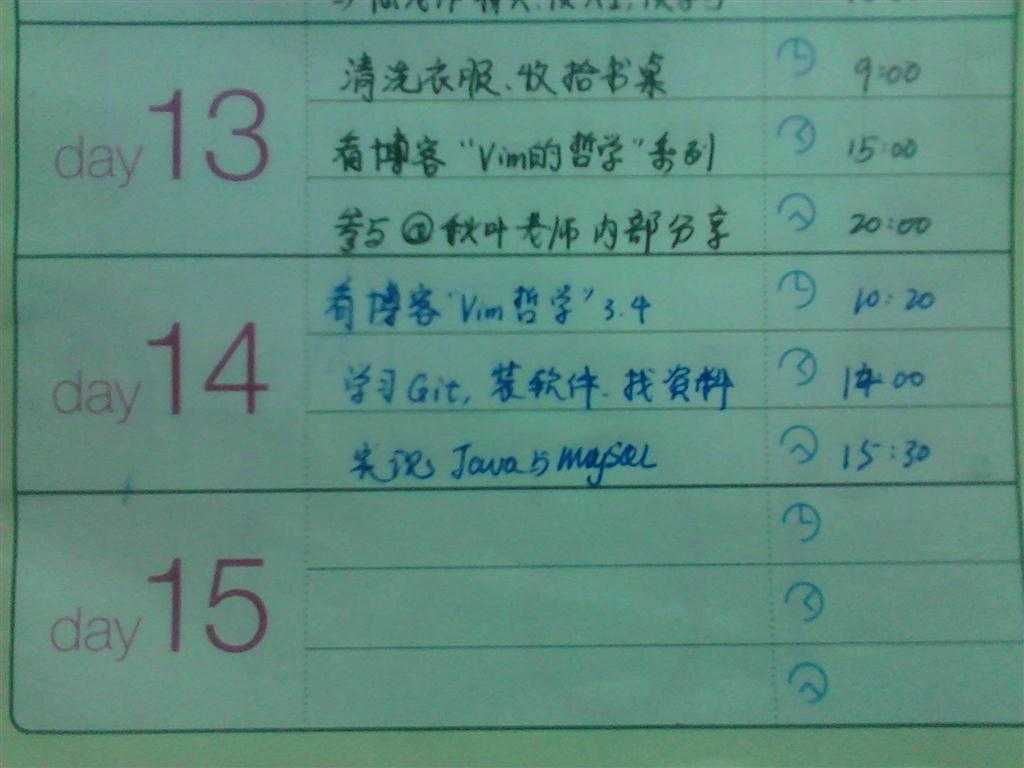 day 13
清洗衣服、收拾书桌 9:00
看博客“Vim的哲学”系列 15:00
参与@秋叶老师内部分享 20:00
day 14
看博客“Vim哲学”3.4 10:20
学习Git, 装软件、找资料 14:00
实现Java与mysql 15:30
day 15